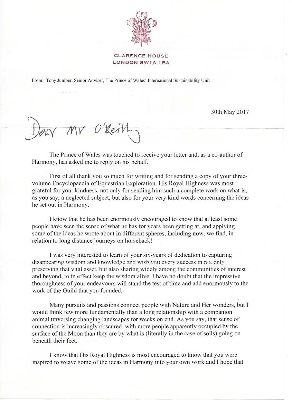 CLARENCE HOUSE
LONDON SW1A 1BA
From: Tony Juniper, Senior Advisor, The Prince of Wales International Sustainability Unit
30th May 2017
Dear Mr O'Reilly
The Prince of Wales was touched to receive your letter and, as a co-author of
Harmony, has asked me to reply on his behalf.
First of all thank you so much for writing and for sending a copy of your three-
volume Encyclopaedia of Equestrian Exploration. His Royal Highness was most
grateful for your kindness, not only for sending him such a complete work on what is,
as you say, a neglected subject, but also for your very kind words concerning the ideas
he set out in Harmony.
I know that he has been enormously encouraged to know that at least some
people have seen the sense of what he has for years been getting at, and applying
some of the ideas he wrote about in different spheres, including now, we find, in
relation to long distance journeys on horseback!
I was very interested to learn of your years of dedication to capturing
disappearing wisdom and knowledge and wish you every success in not only
preserving that vital asset, but also sharing widely among the communities of interest
and beyond, to in effect keep the wisdom alive. I have no doubt that the impressive
thoroughness of your endeavours will stand the test of time and add enormously to the
work of the Guild that you founded.
Many pursuits and passions connect people with Nature and Her wonders, but I
would think few more fundamentally than a long relationship with a companion
animal traversing changing landscapes for weeks on end. As you say, that sense of
connection is increasingly obscured, with more people apparently occupied by the
surface of the Moon than they are by what is (literally in the case of soils) going on
beneath their feet.
I know that His Royal Highness is most encouraged to know that you were
inspired to weave some of the ideas in Harmony into your own work and I hope that